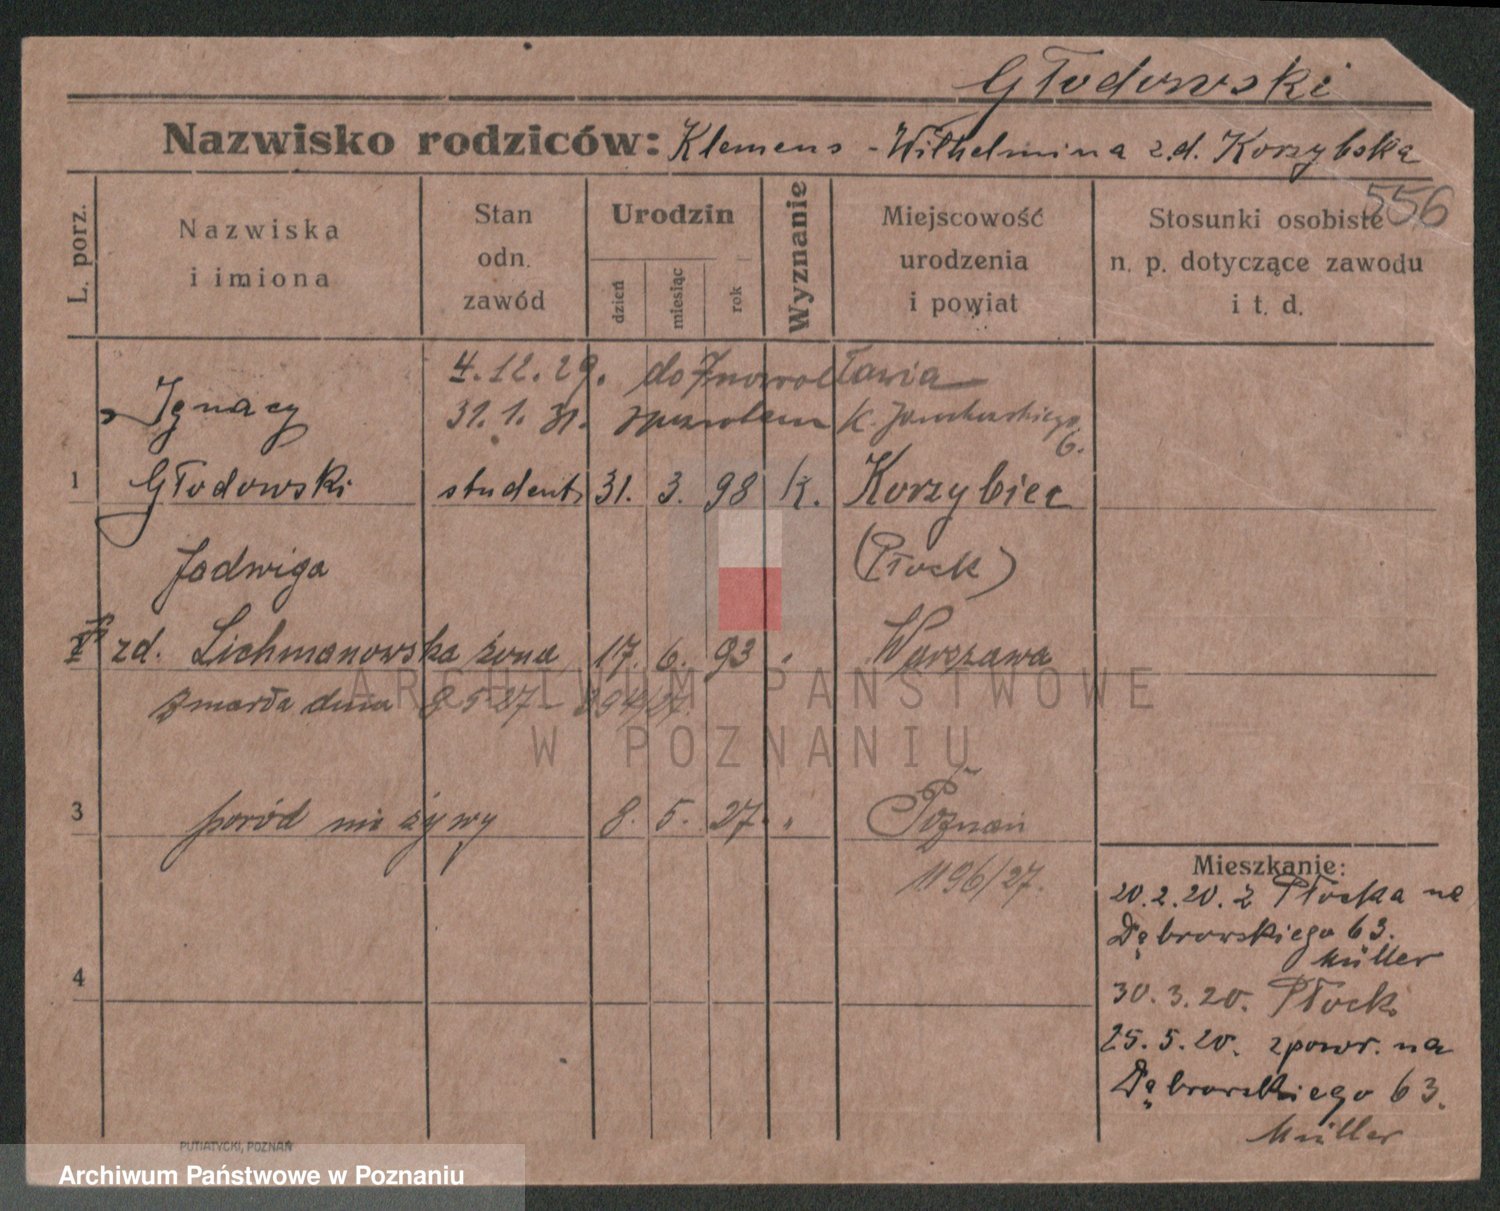 Głodowski
Nazwisko rodziców: Klemens - Wilhelmina z.d. Korzybska
556
L. porz.
Nazwiska
i imiona
Stan
odn.
zawód
Urodzin
dzień
miesiąc
rok
Wyznanie
Miejscowość
urodzenia
i powiat
Stosunki osobiste
n. p. dotyczące zawodu
i t. d.
4.12.29. do Inowrocławia
Ignacy
31.1.31. K. Jarochowskiego
6.
1 Głodowski student 31. 3. 98 k. Korzybiec
Jadwiga (Płock)
zd. Lichmanowska żona 17. 6. 93 " Warszawa
zmarła dnia 8.5.27 - 894/27.
3 poród nie żywy 8. 5. 27. " Poznań
1196/27.
4
Mieszkanie:
20.2.20. z Płocka na
Dąbrowskiego 63.
Müller
30.3.20. Płock
25.5.20. zpowr. na
Dąbrowskiego 63.
Müller
PUTIATYCKI, POZNAŃ
ARCHIWUM PAŃSTWOWE
W POZNANIU
Archiwum Państwowe w Poznaniu